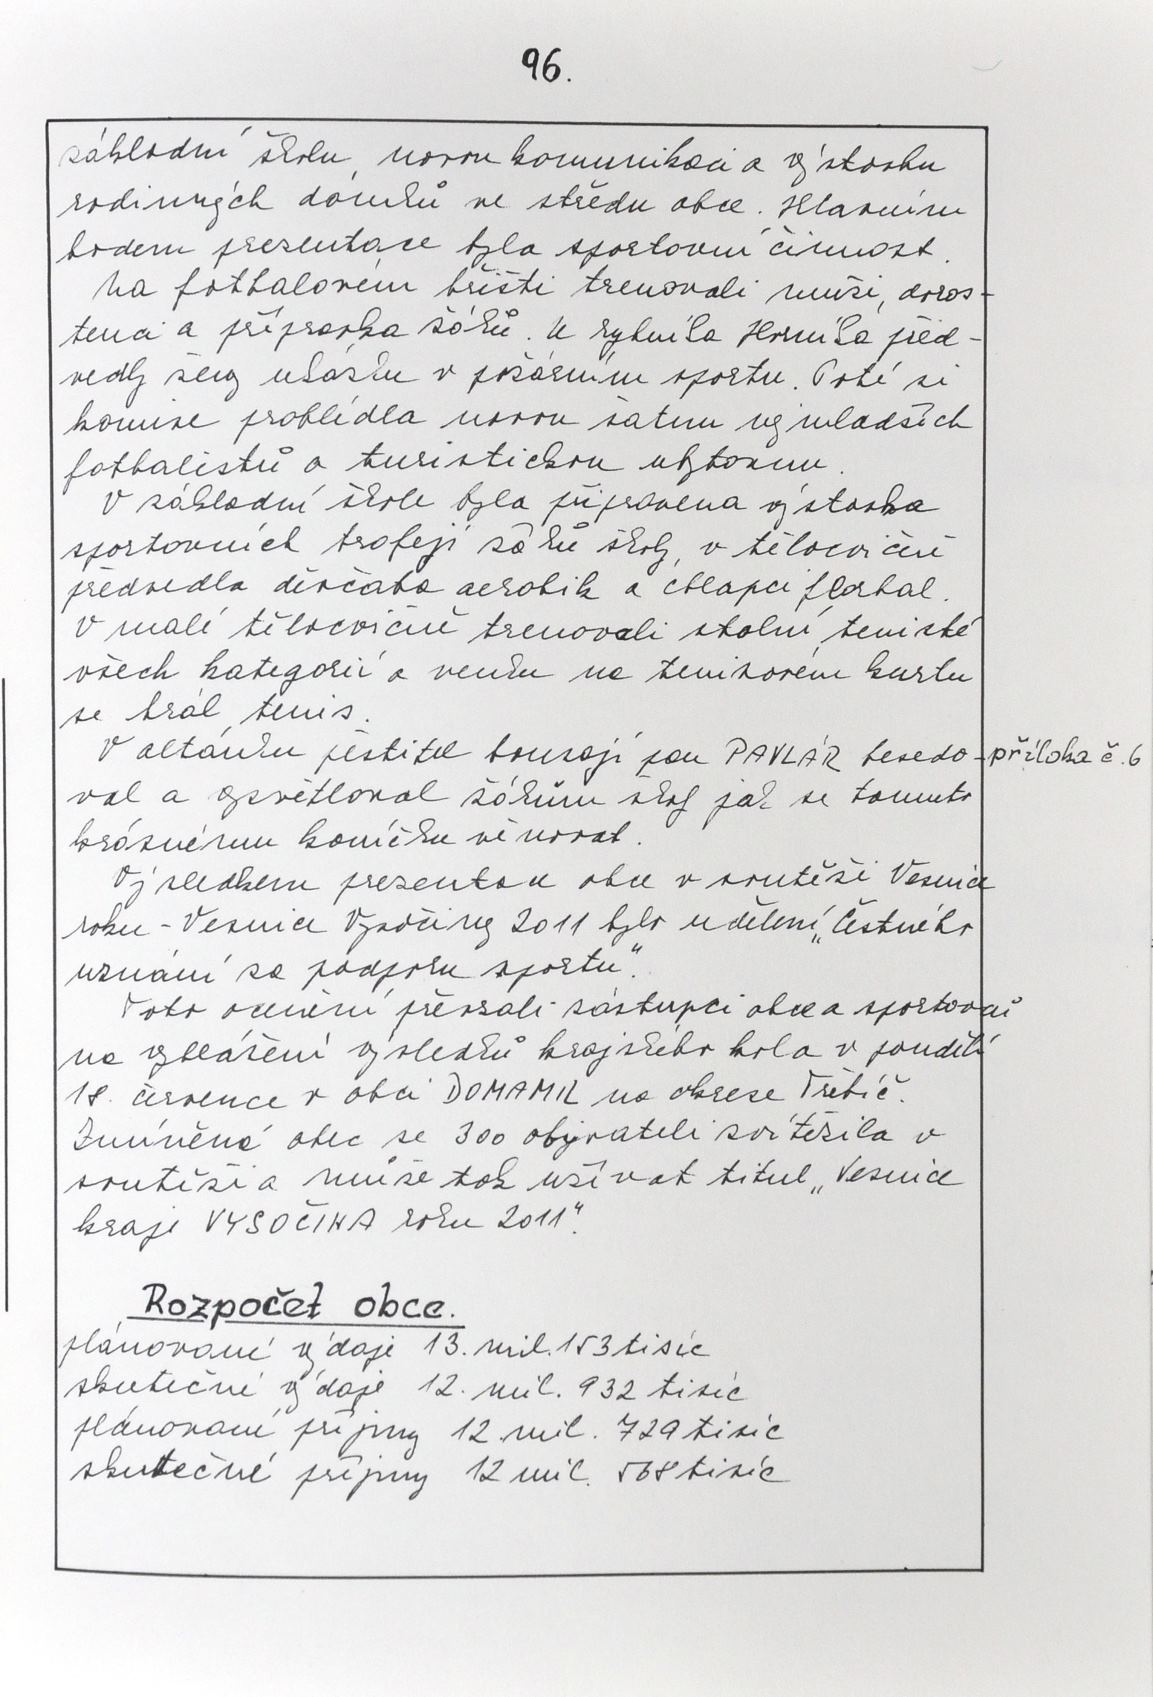 96.
základní školu, novou komunikaci a výstavbu
rodinných domků ve středu obce. Hlavním
bodem prezentace byla sportovní činnost.
Na fotbalovém hřišti trenovali muži, doros-
tenci a přípravka žáků. U rybníka Horníka před-
vedly ženy ukázku v požárním sportu. Poté si
komise prohlédla novou šatnu nejmladších
fotbalistů a turistickou ubytovnu.
V základní škole byla připravena výstavka
sportovních trofejí žáků školy, v tělocvičně
předvedla děvčata aerobik a chlapci florbal.
V malé tělocvičně trenovali stolní tenisté
všech kategorií a venku na tenisovém kurtu
se hrál tenis.
V altánku pěstitel bonsají pan PAVLÁR besedo-
příloha č. 6
val a vysvětloval žákům školy jak se tomuto
krásnému koníčku věnovat.
Výsledkem prezentace obce v soutěži Vesnice
roku - Vesnice Vysočiny 2011 bylo udělení „Čestného
uznání za podporu sportu".
Toto ocenění převzali zástupci obce a sportovci
na vyhlášení výsledků krajského kola v pondělí
18. července v obci DOMAMIL na okrese Třebíč.
Zmíněná obec se 300 obyvateli zvítězila v
soutěži a může tak užívat titul „Vesnice
kraje VYSOČINA roku 2011".
Rozpočet obce.
plánované výdaje 13. mil. 153 tisíc
skutečné výdaje 12. mil. 932 tisíc
plánované príjmy 12 mil. 729 tisíc
skutečné príjmy 12 mil. 568 tisíc